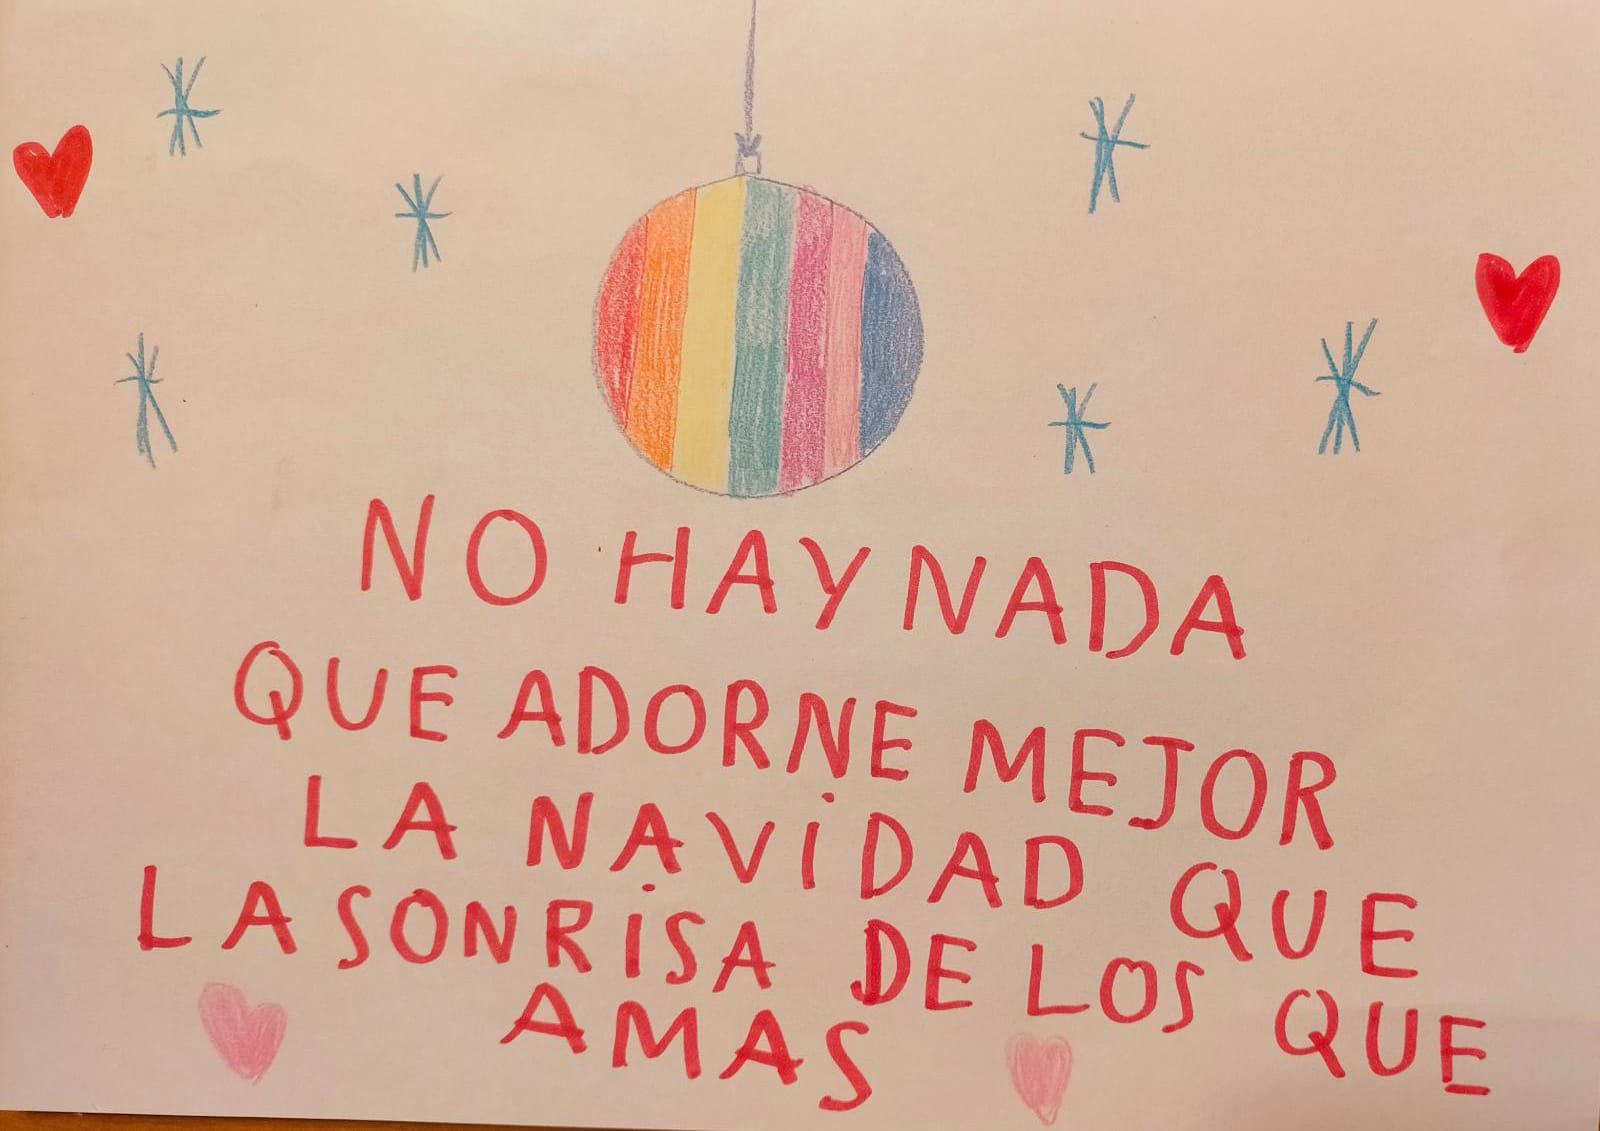 NO HAY NADA
QUE ADORNE MEJOR
LA NAViDAD QUE
LA SONRiSA DE LOS QUE
AMAS